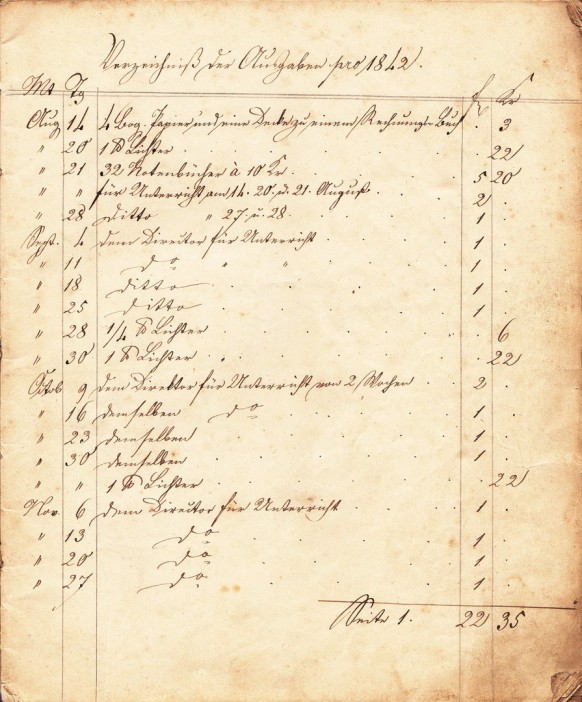 Verzeichniß der Ausgaben pro 1842.
Mt Tg fl Kr
Aug 14 4 Bog. Papier und eine Decke zu einem Rechnungs-Buch . 3
" 20 1 ℔ Lichter . 22
" 21 32 Notenbücher à 10 Kr. 5 20
" " für Unterricht am 14. 20. u. 21. August. 2 .
" 28 ditto " 27. u. 28. 1 .
Sept. 4 dem Director für Unterricht 1 .
" 11 do " " 1 .
" 18 ditto 1 .
" 25 ditto 1 .
" 28 1/4 ℔ Lichter . 6
" 30 1 ℔ Lichter . 22
Octob 9 dem Direktor für Unterricht von 2 Wochen 2 .
" 16 demselben do 1 .
" 23 demselben 1 .
" 30 demselben 1 .
" " 1 ℔ Lichter . 22
Nov. 6 dem Director für Unterricht 1 .
" 13 do 1 .
" 20 do 1 .
" 27 do 1 .
Seite 1. 22 35